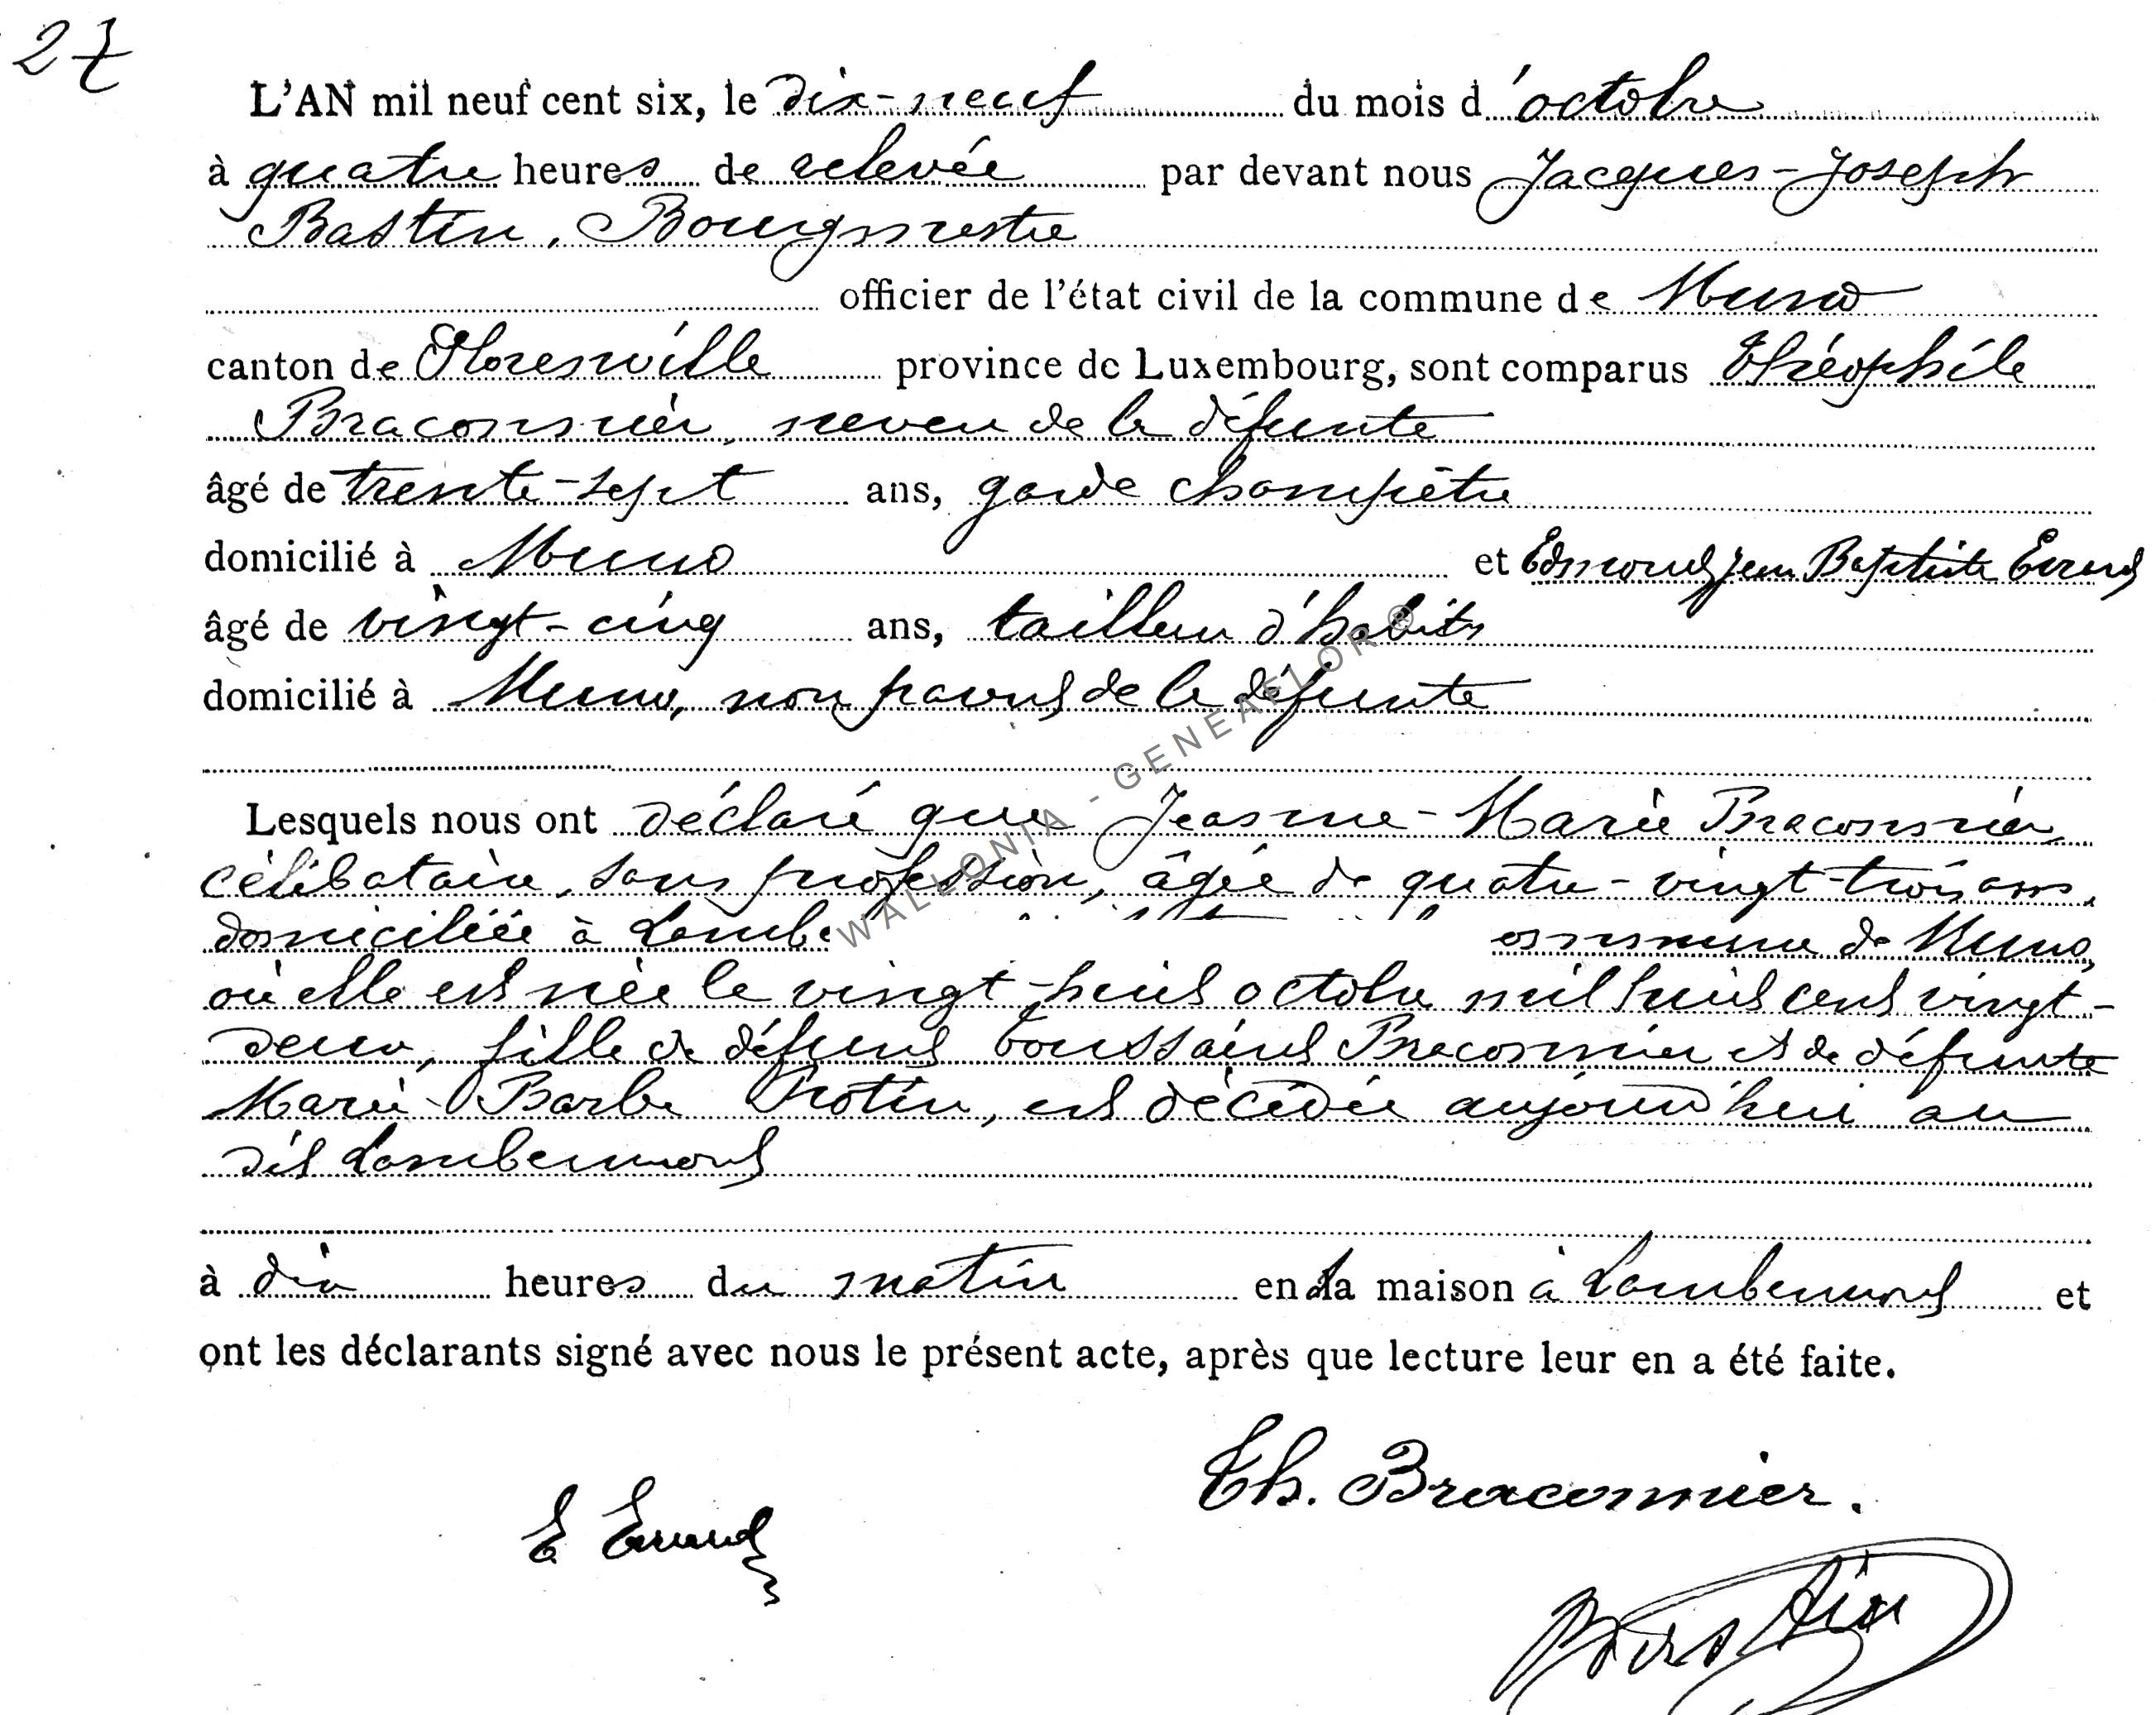 27
L'AN mil neuf cent six, le dix-neuf du mois d'octobre
à quatre heures de relevée par devant nous Jacques-Joseph
Bastin, Bourgmestre
officier de l'état civil de la commune de Muno
canton de Florenville province de Luxembourg, sont comparus Théophile
Braconnier, neveu de la défunte
âgé de trente-sept ans, garde champêtre
domicilié à Muno et Edmond Jean Baptiste Evrard
âgé de vingt-cinq ans, tailleur d'habits
domicilié à Muno, non parent de la défunte
Lesquels nous ont déclaré que Jeanne-Marie Braconnier,
célibataire, sans profession, âgée de quatre-vingt-trois ans,
domiciliée à Lambe ommune de Muno,
où elle est née le vingt-huit octobre mil huit cent vingt-
deux, fille de défunt Toussaint Braconnier et de défunte
Marie-Barbe Protin, est décédée aujourd'hui au
dit Lambermont
à dix heures du matin en la maison à Lambermont et
ont les déclarants signé avec nous le présent acte, après que lecture leur en a été faite.
Th. Braconnier.
E Evrard
Bastin
WALLONIA - GENEAFLOR ®